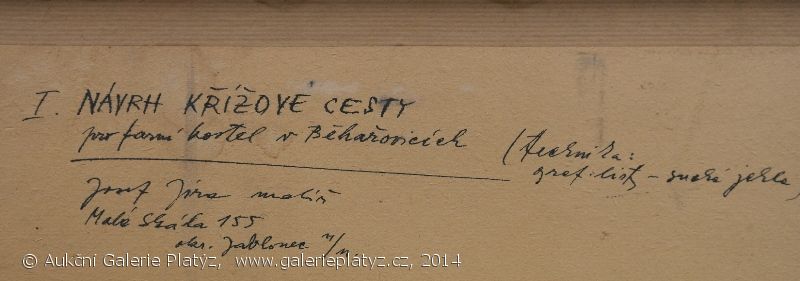 I. NÁVRH KŘÍŽOVE CESTY
pro farní kostel v Běhařovicích
(technika:
graf. listy – suchá jehla)
Josef Jíra malíř
Malá Skála 155
okr. Jablonec n/N.
© Aukční Galerie Platýz, www.galerieplatyz.cz, 2014